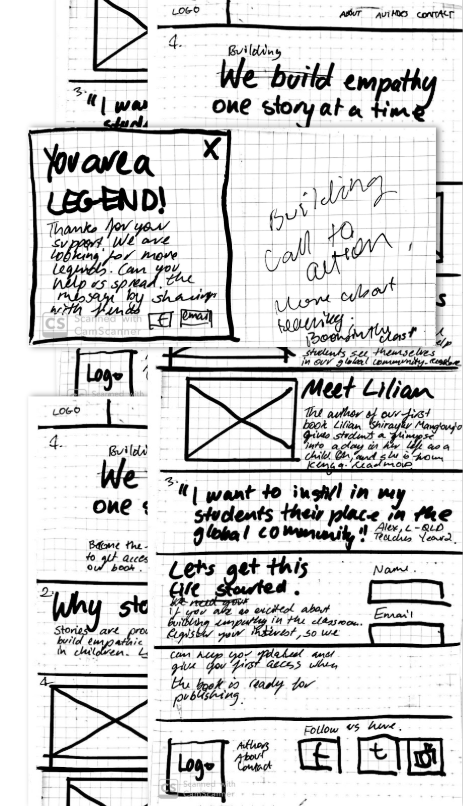 LOGO
ABOUT AUTHORS CONTACT
1.
Building
We build empathy
one story at a time
3. "I wan
You are a X
LEGEND!
Thanks for your
support. We are
looking for more
legends. Can you
help us spread the
message by sharing
with
t email
CS Scanned with
CamScanner
Building
call to
action.
More about
Books in the class
help
students see themselves
in our global community.
Logo
Meet Lilian
The author of our first
book Lilian
gives student a glimpse
into a day in her life as a
child. Oh, and she is from
Kenya. Read more
3. "I want to instill in my
students their place in the
global community." Alex, L-QLD
Teaches Year 2.
Let's get this
fire started.
We need your
if you are as excited about
building empathy in the classroom.
Register your interest, so we
can keep you updated and
give you first access when
the book is ready for
publishing.
Name.
Email
Follow us here.
Logo
Authors
About
Contact
f t
Scanned with
CamScanner
LOGO
1.
Buildi
We
one s
Become the
to get acces
our book.
2. Why sto
Stories are pro
build empathic
in children.